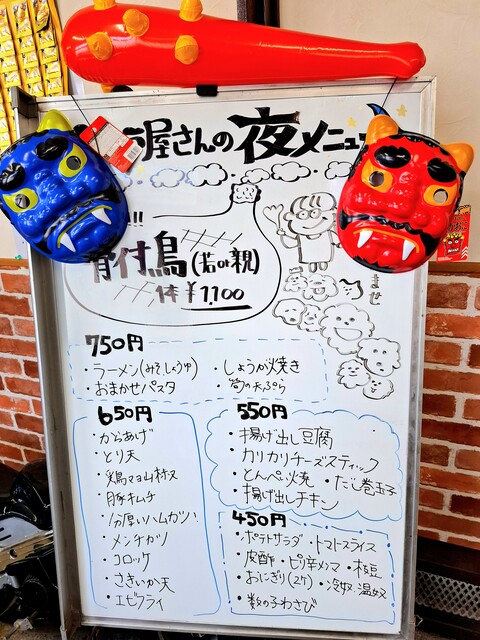 屋さんの夜メニュー
!!
骨付鳥(若or親)
1本 ¥1,100
ませ
750円
・ラーメン(みそ,しょうゆ)
・しょうが焼き
・おまかせパスタ
・筍の天ぷら
650円
・からあげ
・とり天
・鶏マヨ山椒ヌ
・豚キムチ
・1/分厚いハムカツ!
・メンチカツ
・コロッケ
・さきいか天
・エビフライ
550円
・揚げ出し豆腐
・カリカリチーズスティック
・とんぺい焼 ・だし巻玉子
・揚げ出しチキン
450円
・ポテトサラダ ・トマトスライス
・皮酢 ・ピリ辛メンマ ・枝豆
・おにぎり(2ケ) ・冷奴・温奴
・数の子わさび